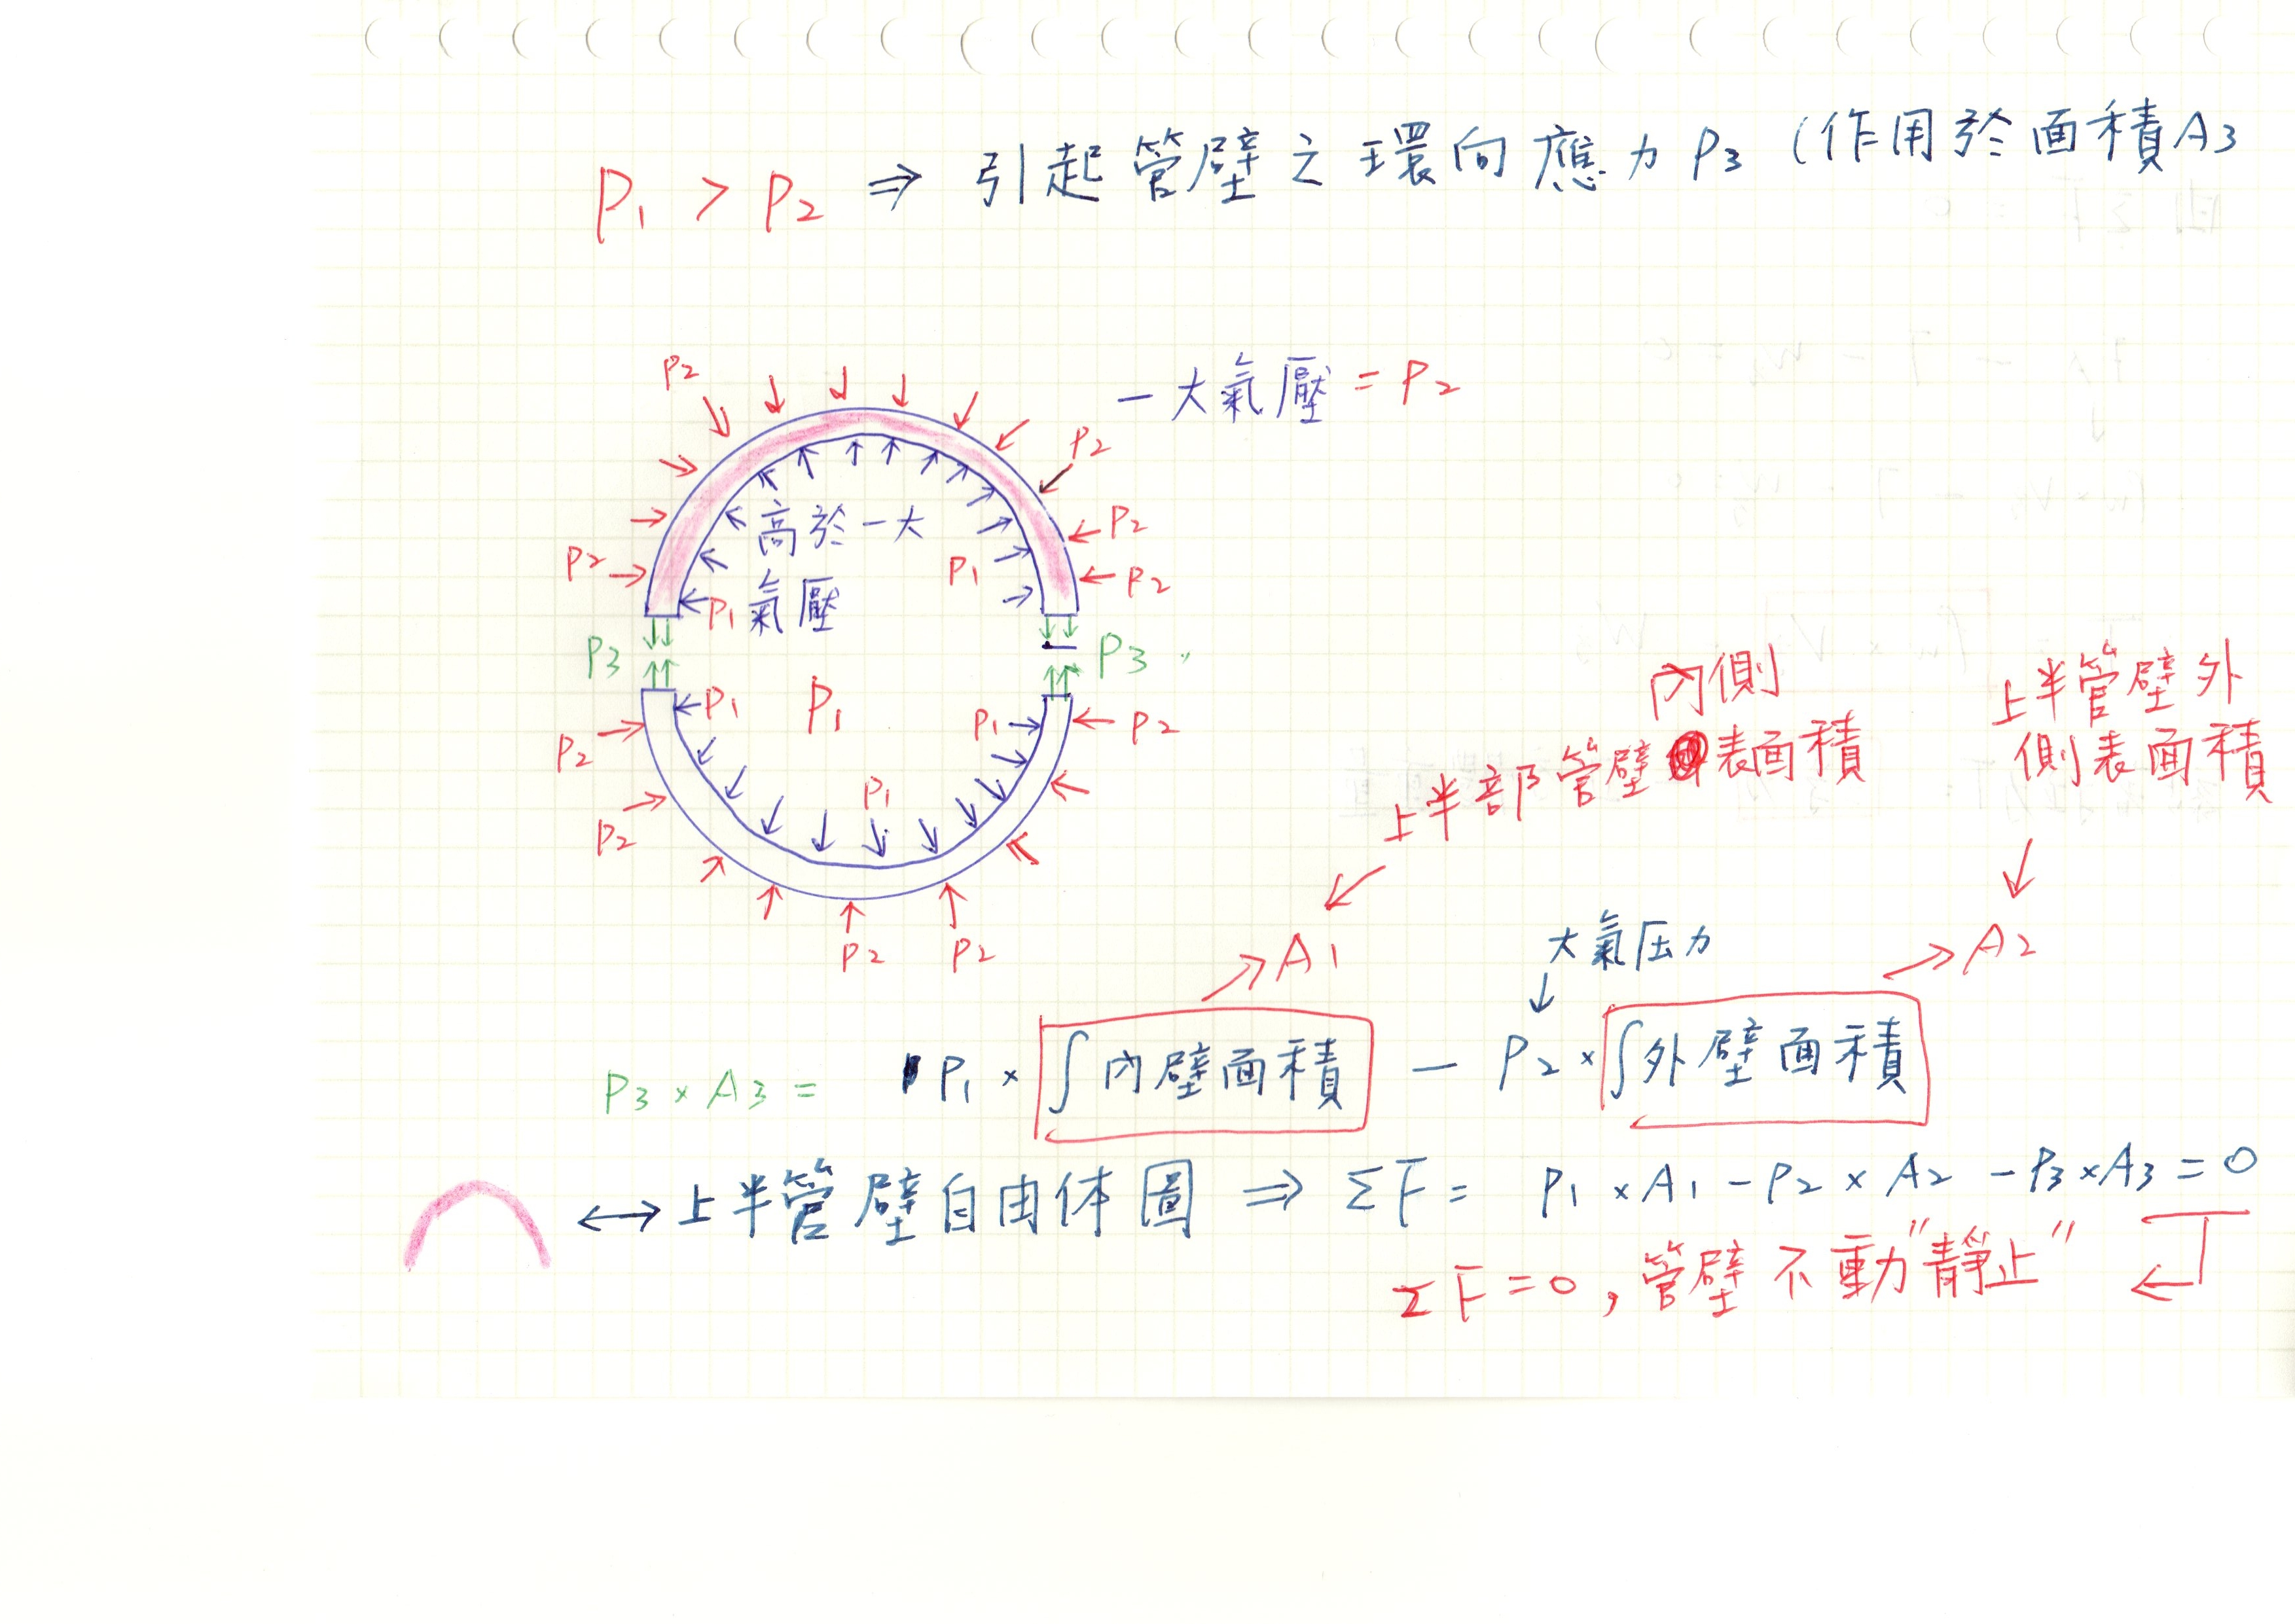 P1 > P2 ⇒ 引起管壁之環向應力 P3 (作用於面積A3
P2
一大氣壓 = P2
P2
高於一大
P2
P2
P1
P2
P1
氣壓
P3
P3
P1
P1
P1
P2
P2
P1
P2
P2
P2
內側
上半部管壁表面積
上半管壁外
側表面積
A1
大氣压力
A2
P3 × A3 = P1 × ∫內壁面積 − P2 × ∫外壁面積
↔ 上半管壁自由体圖 ⇒ ΣF = P1 × A1 − P2 × A2 − P3 × A3 = 0
ΣF = 0, 管壁不動"靜止"